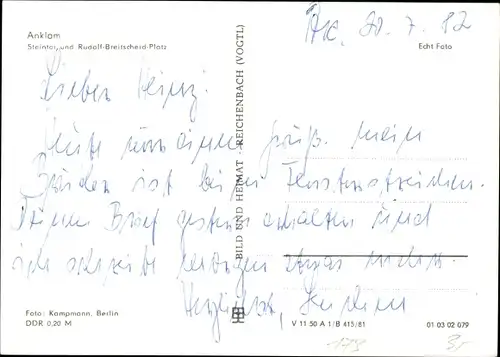 Anklam
Steintor und Rudolf-Breitscheid-Platz
Echt Foto
20.7.82
Lieber Heinz!
Heute nur einen Gruß. mein
ist beim Fensterstreichen.
Brief gestern erhalten und
ich schreibe morgen etwas mehr.
BILD UND HEIMAT REICHENBACH (VOGTL)
Foto: Kampmann, Berlin
DDR 0,20 M
V 11 50 A 1/B 415/81
01 03 02 079